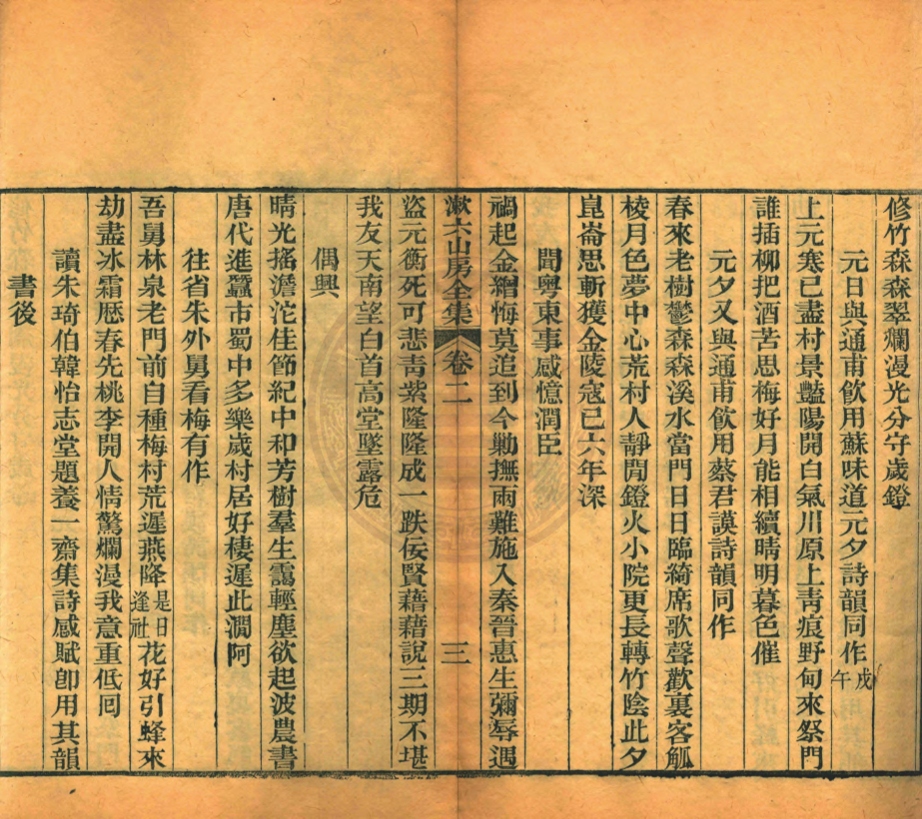 修竹森森翠爛漫光分守歲鐙
元日與通甫飲用蘇味道元夕詩韻同作戊午
上元寒已盡村景豔陽開白氣川原上青痕野甸來祭門
誰插柳把酒苦思梅好月能相續晴明暮色催
元夕又與通甫飲用蔡君謨詩韻同作
春來老樹鬱森森溪水當門日日臨綺席歌聲歡裏客觚
棱月色夢中心荒村人靜閒鐙火小院更長轉竹陰此夕
崑崙思斬獲金陵寇已六年深
聞粵東事感憶潤臣
禍起金繒悔莫追到今勦撫兩難施入秦晉惠生彌辱遇
漱六山房全集 卷二 三
盜元衡死可悲靑紫隆隆成一跌佞賢藉藉說三期不堪
我友天南望白首高堂墜露危
偶興
晴光搖澹沱佳節紀中和芳樹羣生靄輕塵欲起波農書
唐代進蠶市蜀中多樂歲村居好棲遲此澗阿
往省朱外舅看梅有作
吾舅林泉老門前自種梅村荒遲燕降是日逢社花好引蜂來
劫盡冰霜歷春先桃李開人情驚爛漫我意重低囘
讀朱琦伯韓怡志堂題養一齋集詩感賦卽用其韻
書後